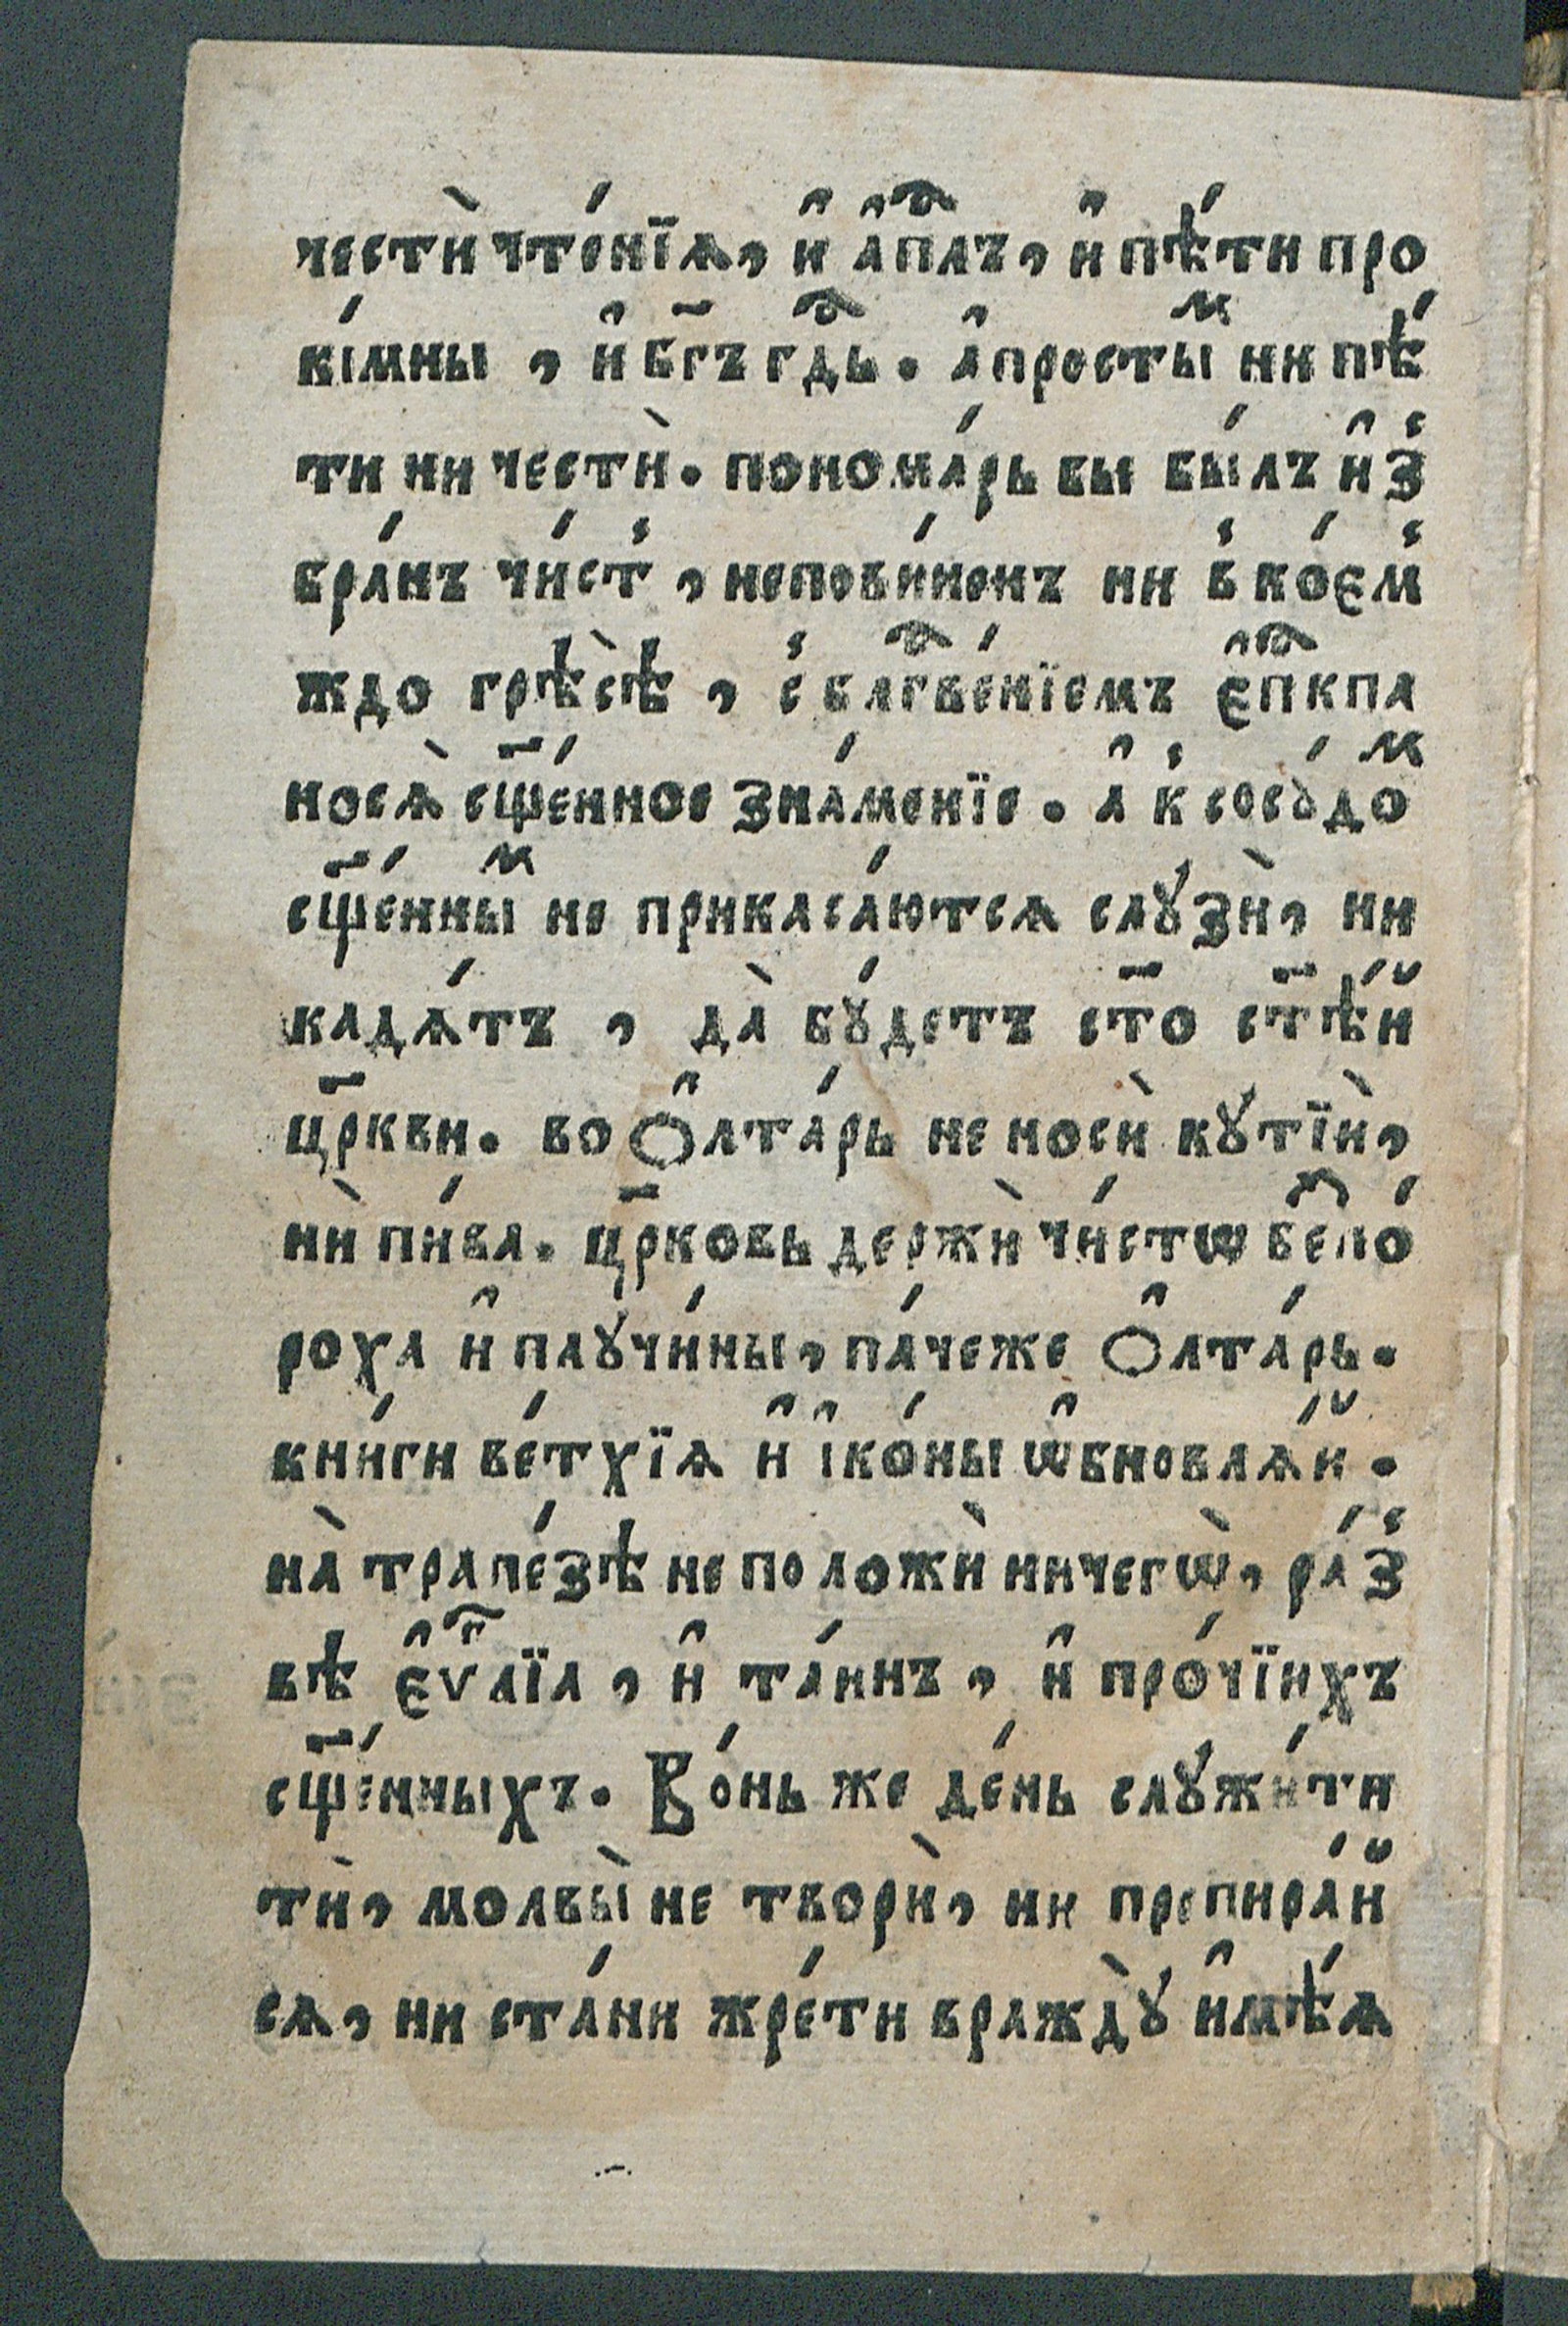 честѝ чте́нїѧ, и҆ а҆пⷭ҇лъ, и҆ пѣ́ти про
кі́мны, и҆ бг҃ъ гдⷭ҇ь. а҆ просты́мⷨ ни пѣ́
ти ни честѝ. пономарь бы бы́лъ и҆з̾
бра́нъ чи́ст̾, непови́ненъ ни в̾ ко́ем̾
ждо грѣсѣ̀, с̾ блгⷭ҇ве́нїемъ є҆пⷭ҇кпа
носѧ̀ сщ҃е́нное зна́менїе. а҆ к̾ сосꙋ́доⷨ
сщ҃е́нныⷨ не прикаса́ютсѧ слꙋзѝ, ни
кадѧ́тъ, да̀ бꙋ́детъ ст҃о ст҃ѣ́й
цр҃кви. во ѻ҆лта́рь не носѝ кꙋтїѝ,
нѝ пи́ва. цр҃ковь держѝ чи́стѡ беⷥпо́
роха и҆ паꙋчи́ны, па́чеже ѻ҆лта́рь.
кни́ги ве́тхїѧ и҆ і҆ко́ны ѡ҆бновлѧ́й.
на̀ трапе́зѣ не положѝ ничегѡ̀, ра́з̾
вѣ є҆ѵⷢ҇лїа, и҆ та́инъ, и҆ про́чїихъ
сщ҃е́нныхъ. Во́нь же де́нь слꙋжи́ти
тѝ, молвы̀ не творѝ, ни препира́й
сѧ, ни ста́ни жре́ти враждꙋ̀ и҆мѣ́ѧ